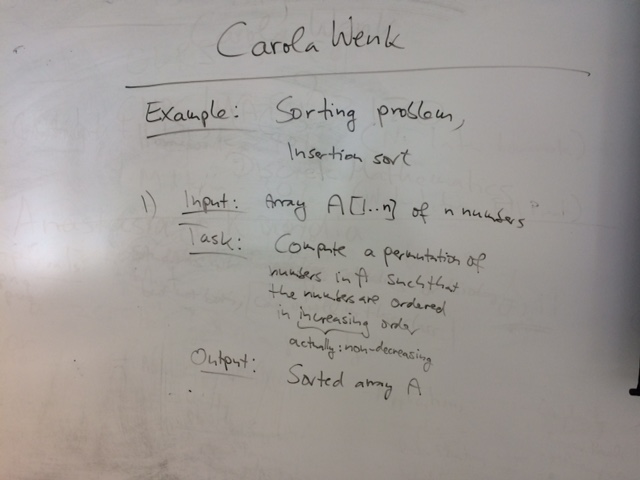 Carola Wenk
Example: Sorting problem,
Insertion sort
1) Input: Array A[1..n] of n numbers
Task: Compute a permutation of
numbers in A such that
the numbers are ordered
in increasing order
actually: non-decreasing
Output: Sorted array A